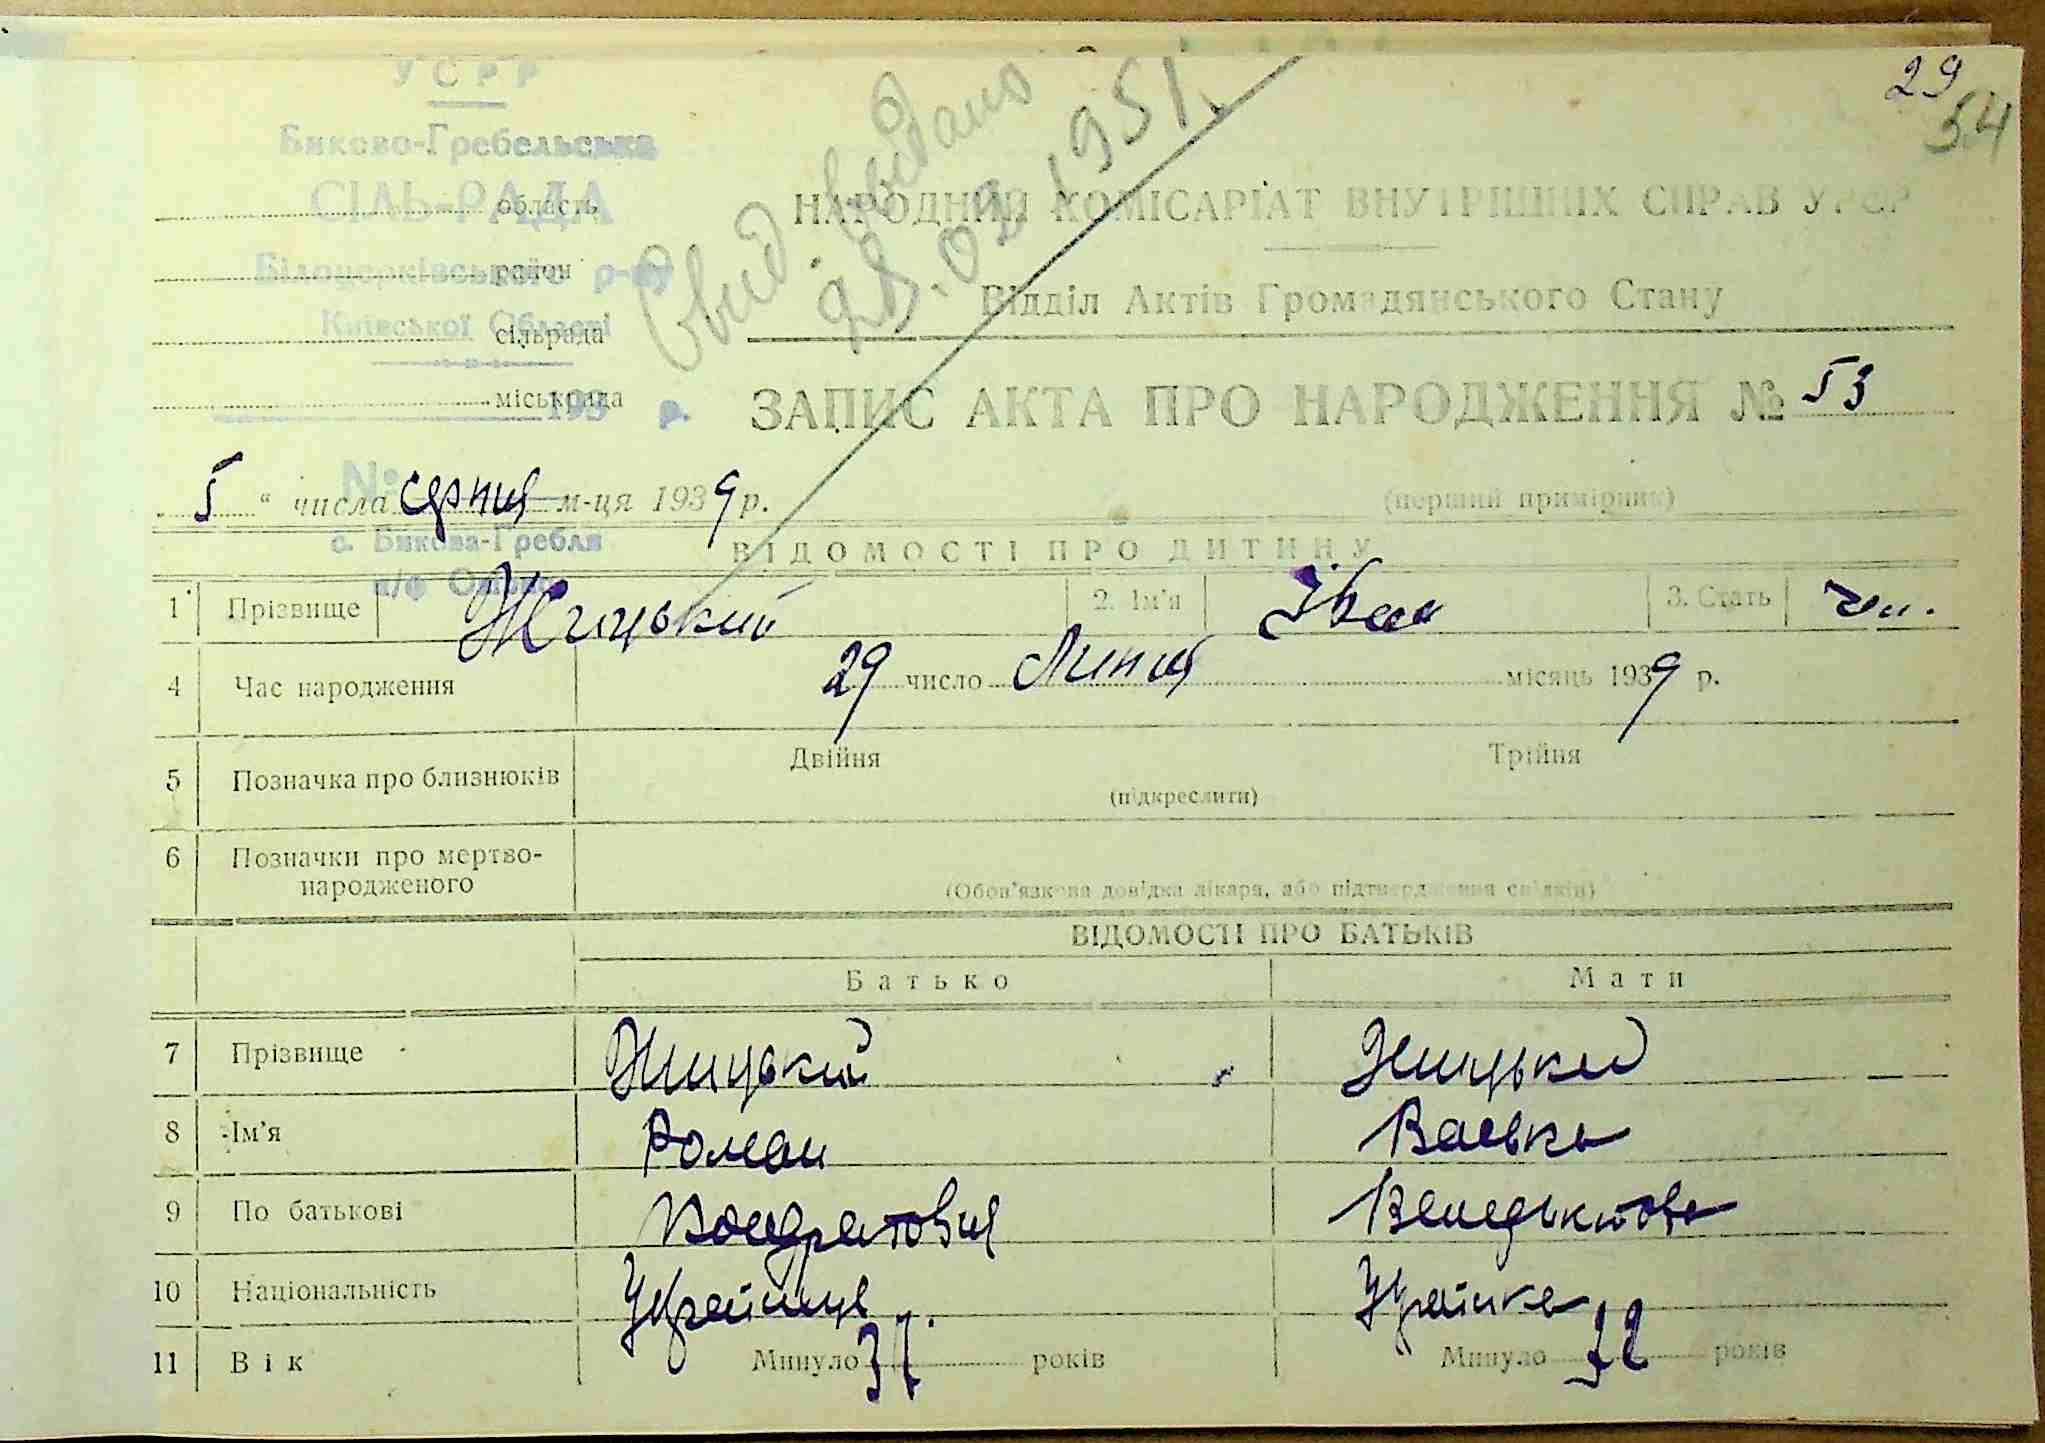 29
54
УСРР
Биково-Гребельська
СІЛЬ-РАДА
Білоцерківського р-ну
Київської Області
193 р.
№
с. Бикова-Гребля
п/ф
область
район
сільрада
міськрада
Свид выдано
28.02.1951.
НАРОДНИЙ КОМІСАРІАТ ВНУТРІШНІХ СПРАВ УРСР
Відділ Актів Громадянського Стану
ЗАПИС АКТА ПРО НАРОДЖЕННЯ № 53
5 " числа серпня м-ця 1939 р.
(перший примірник)
ВІДОМОСТІ ПРО ДИТИНУ
1 Прізвище Жицький 2. Ім'я Іван 3. Стать чол.
4 Час народження 29 число Липня місяць 1939 р.
5 Позначка про близнюків Двійня Трійня
(підкреслити)
6 Позначки про мертво-
народженого
(Обов'язкова довідка лікаря, або підтвердження свідків)
ВІДОМОСТІ ПРО БАТЬКІВ
Батько Мати
7 Прізвище Жицький Жицька
8 Ім'я Роман Васька
9 По батькові Кондратович Венедьктова
10 Національність Українець Українка
11 Вік Минуло 37 років Минуло 32 років